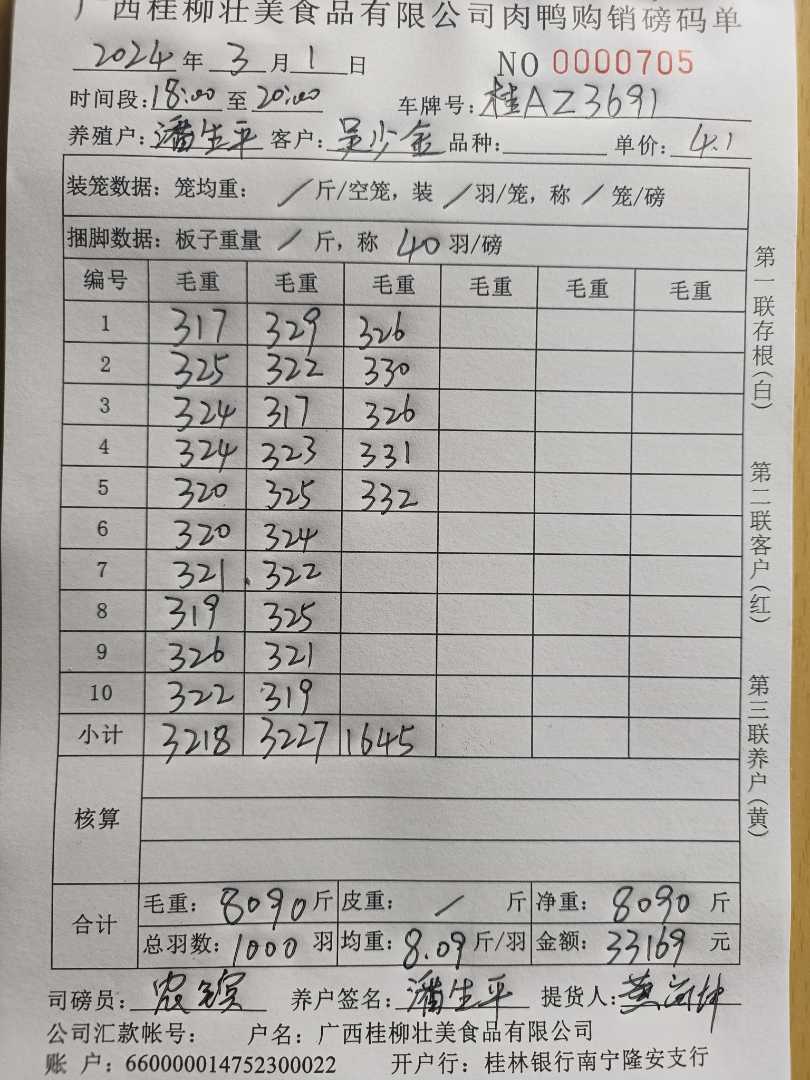 广西桂柳壮美食品有限公司肉鸭购销磅码单
2024年3月1日 NO 0000705
时间段:18:00至20:00 车牌号:桂AZ3691
养殖户:潘生平 客户:吴少金 品种: 单价:4.1
装笼数据:笼均重: /斤/空笼,装/羽/笼,称/笼/磅
捆脚数据:板子重量 /斤,称40羽/磅
编号 毛重 毛重 毛重 毛重 毛重 毛重
1 317 329 326
2 325 322 330
3 324 317 326
4 324 323 331
5 320 325 332
6 320 324
7 321 322
8 319 325
9 326 321
10 322 319
小计 3218 3227 1645
核算
合计
毛重:8090斤 皮重: /斤 净重:8090斤
总羽数:1000羽 均重:8.09斤/羽 金额:33169元
司磅员: 养户签名:潘生平 提货人:黄
公司汇款帐号: 户名:广西桂柳壮美食品有限公司
账 户:660000014752300022 开户行:桂林银行南宁隆安支行
第一联存根(白)
第二联客户(红)
第三联养户(黄)